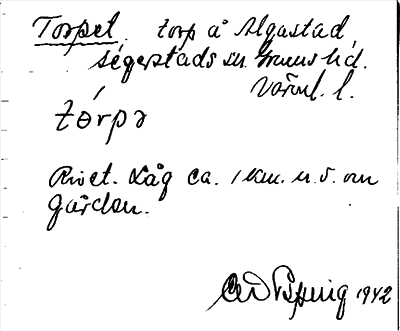 Torpet. torp å Algastad,
Segerstads sn. Grums hd.
Värml. l.
tórpə
Rivet. Låg ca. 1 km. n.v. om
gården.
1942